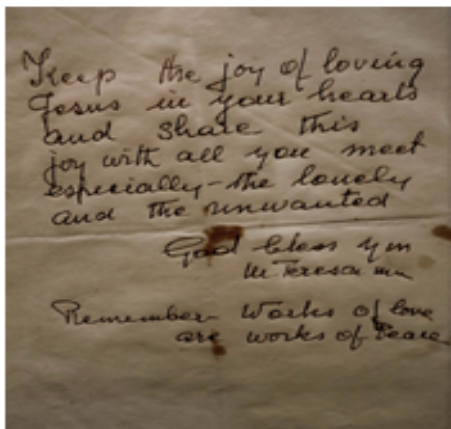 Keep the joy of loving
Jesus in your hearts
and share this
joy with all you meet
especially - the lonely
and the unwanted
God bless you
M Teresa mc
Remember Works of love
are works of Peace